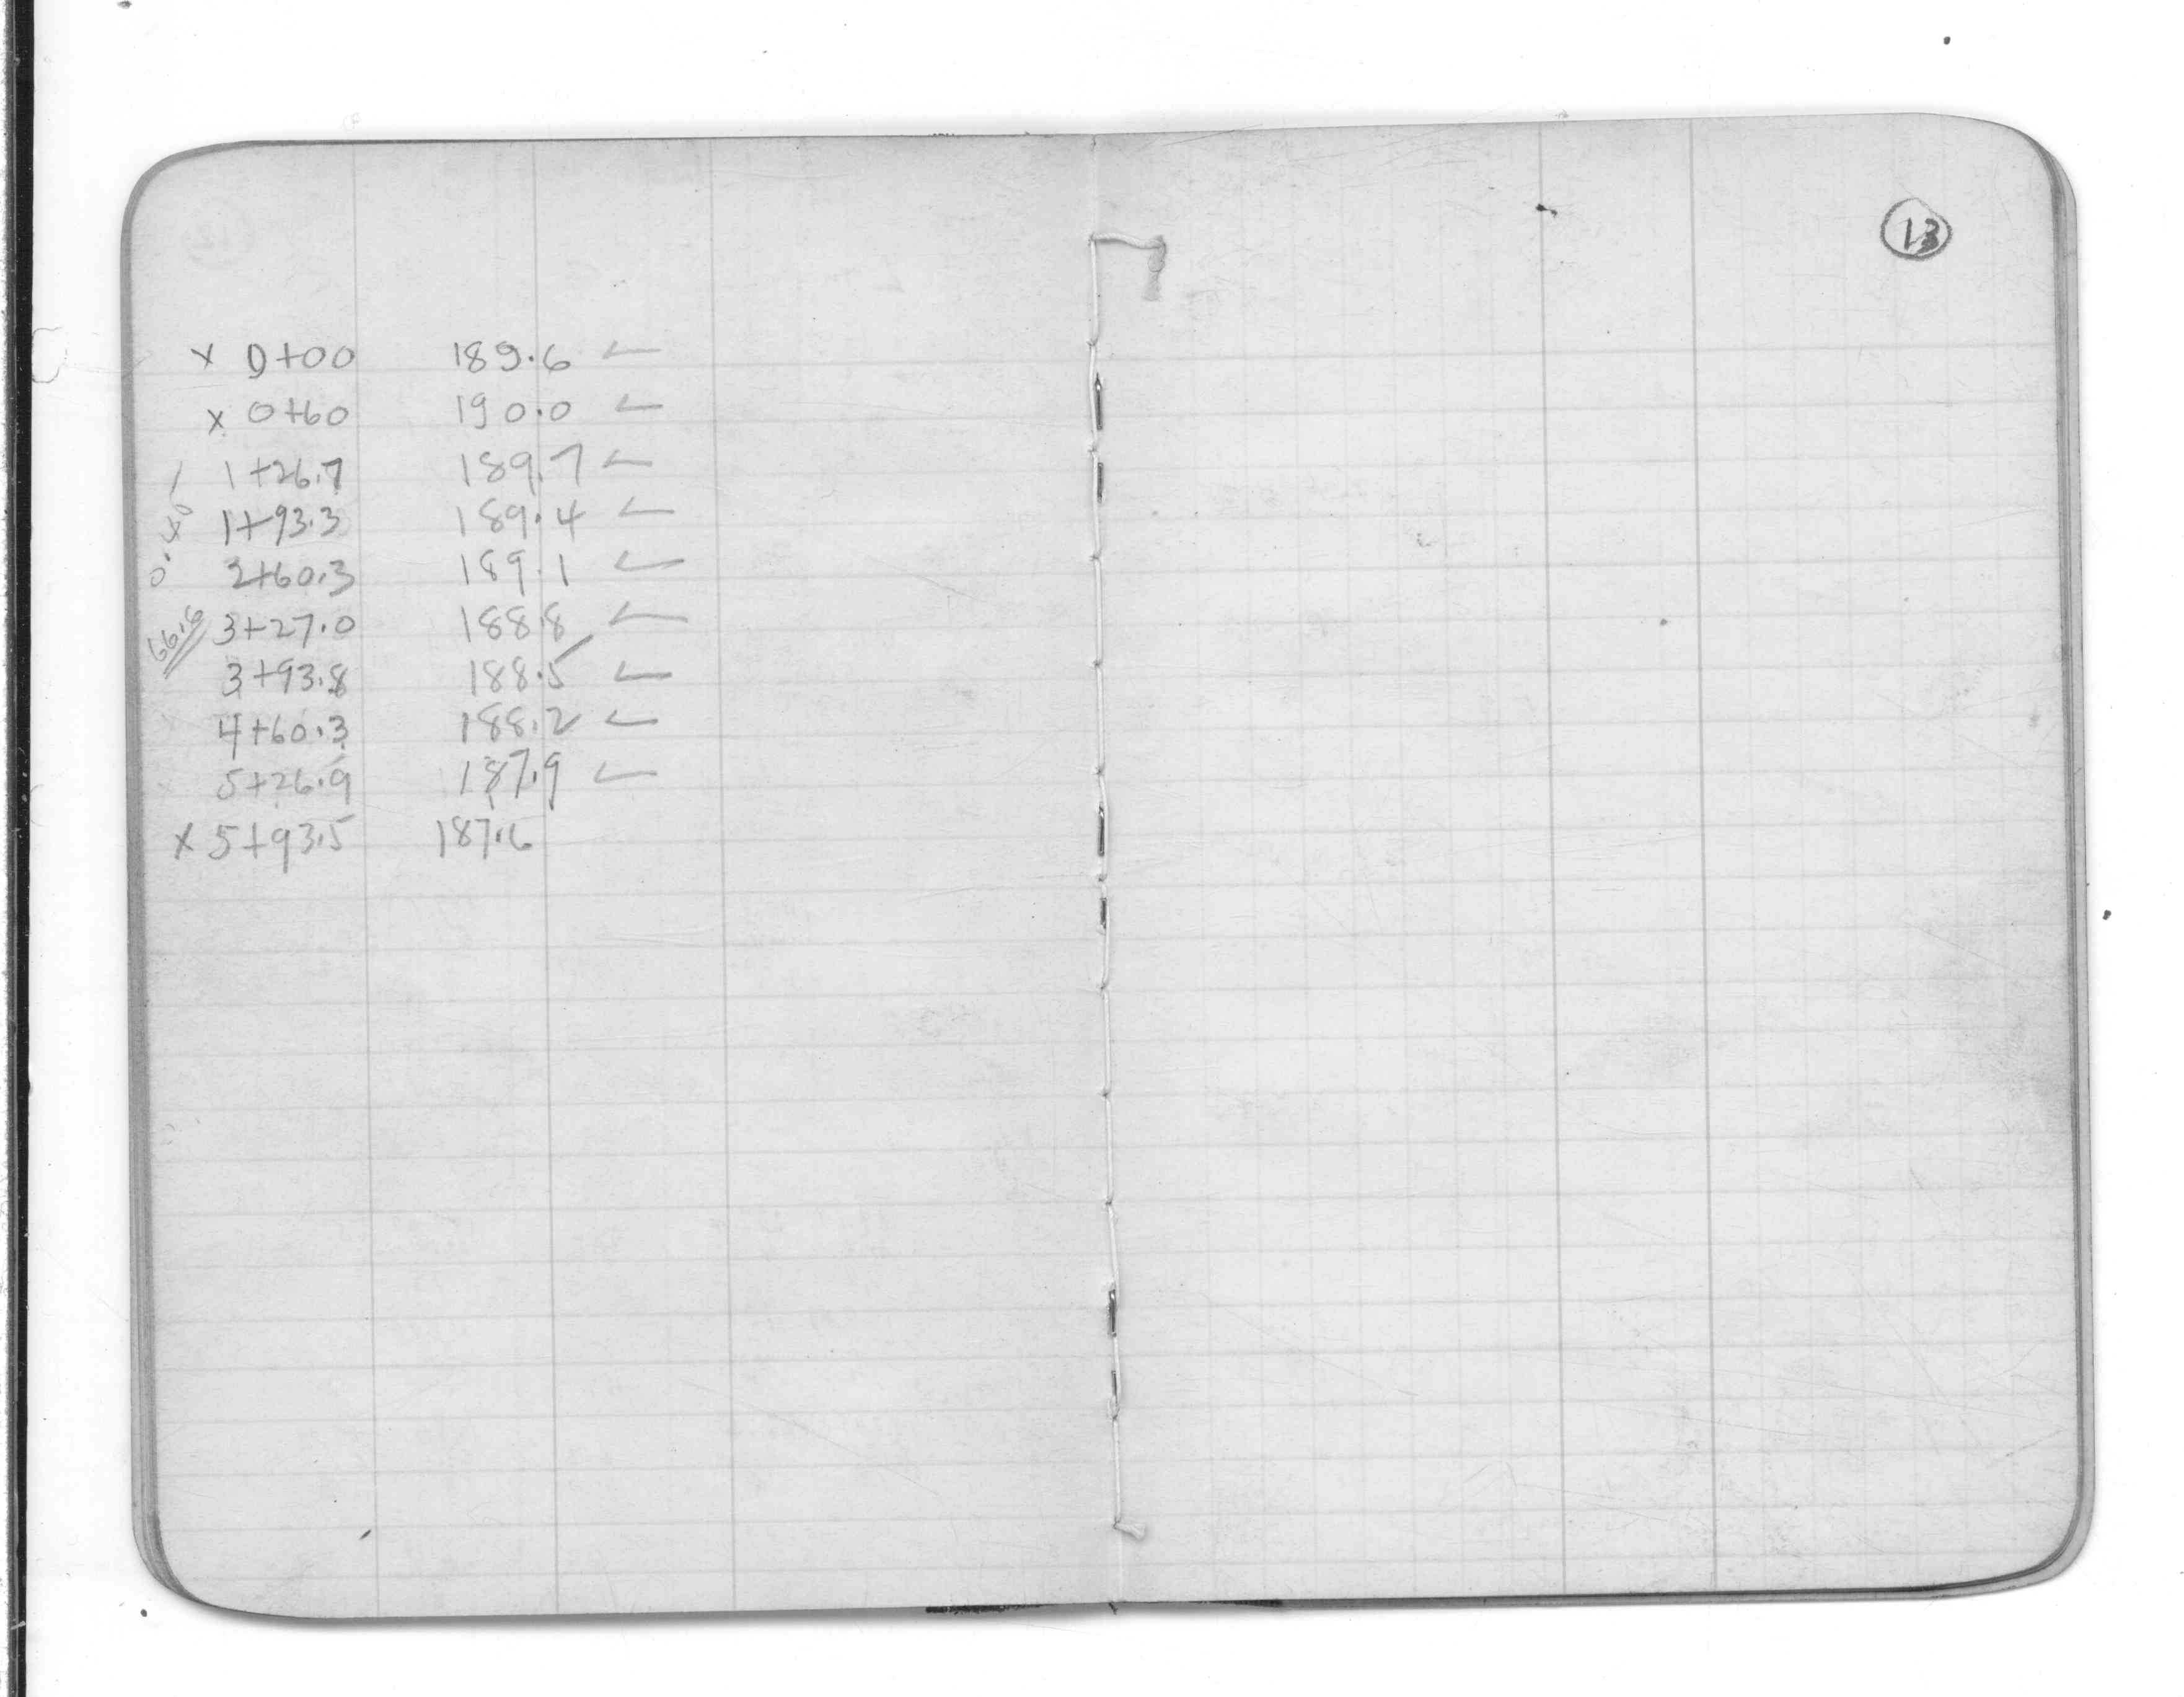 x 0+00 189.6 ✓
x 0+60 190.0 ✓
1+26.7 189.7 ✓
1+93.3 189.4 ✓
2+60.3 189.1 ✓
3+27.0 188.8 ✓
3+93.8 188.5 ✓
4+60.3 188.2 ✓
5+26.9 187.9 ✓
x 5+93.5 187.6
66.6
13